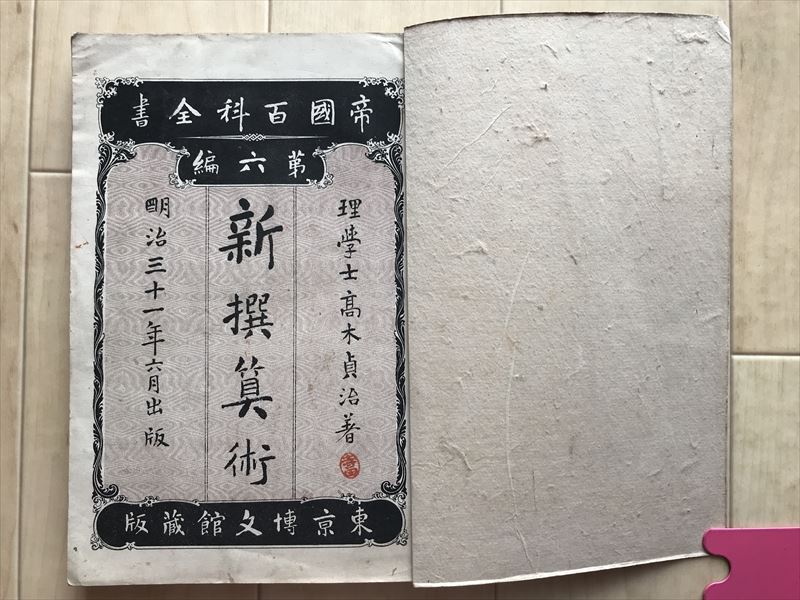 帝國百科全書
第六編
理學士高木貞治著
新撰算術
明治三十一年六月出版
東京博文館藏版